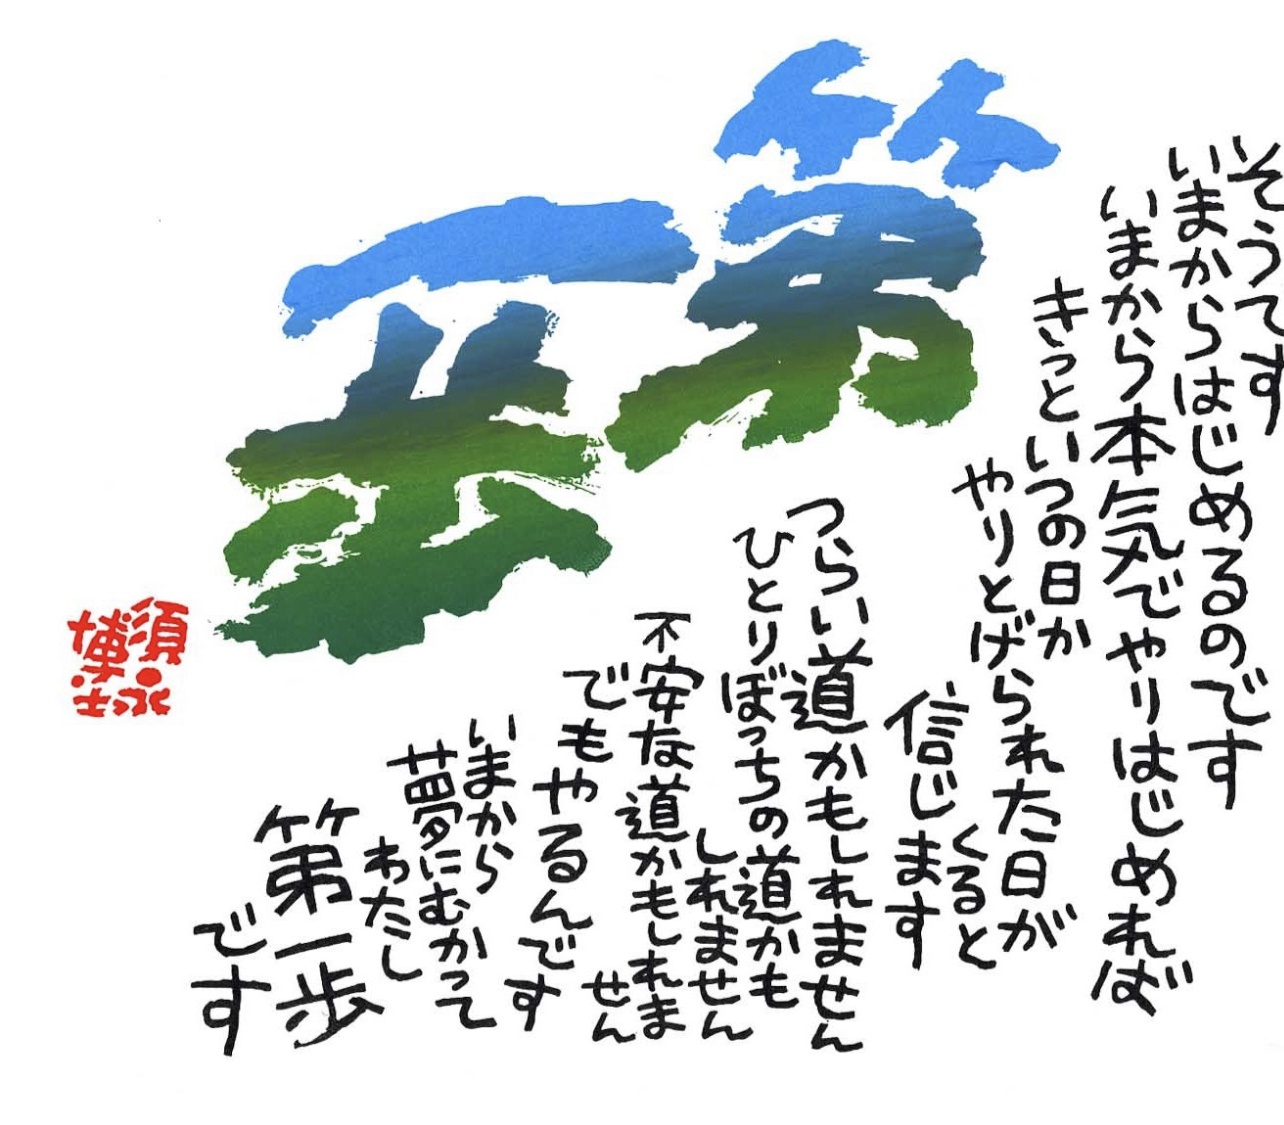 そうです
いまからはじめるのです
いまから本気でやりはじめれば
きっといつの日か
やりとげられた日が
くると
信じます
つらい道かもしれません
ひとりぼっちの道かも
しれません
不安な道かもしれま
せん
でもやるんです
いまから
夢にむかって
わたし
第一歩
です
第
一歩
須永
博士